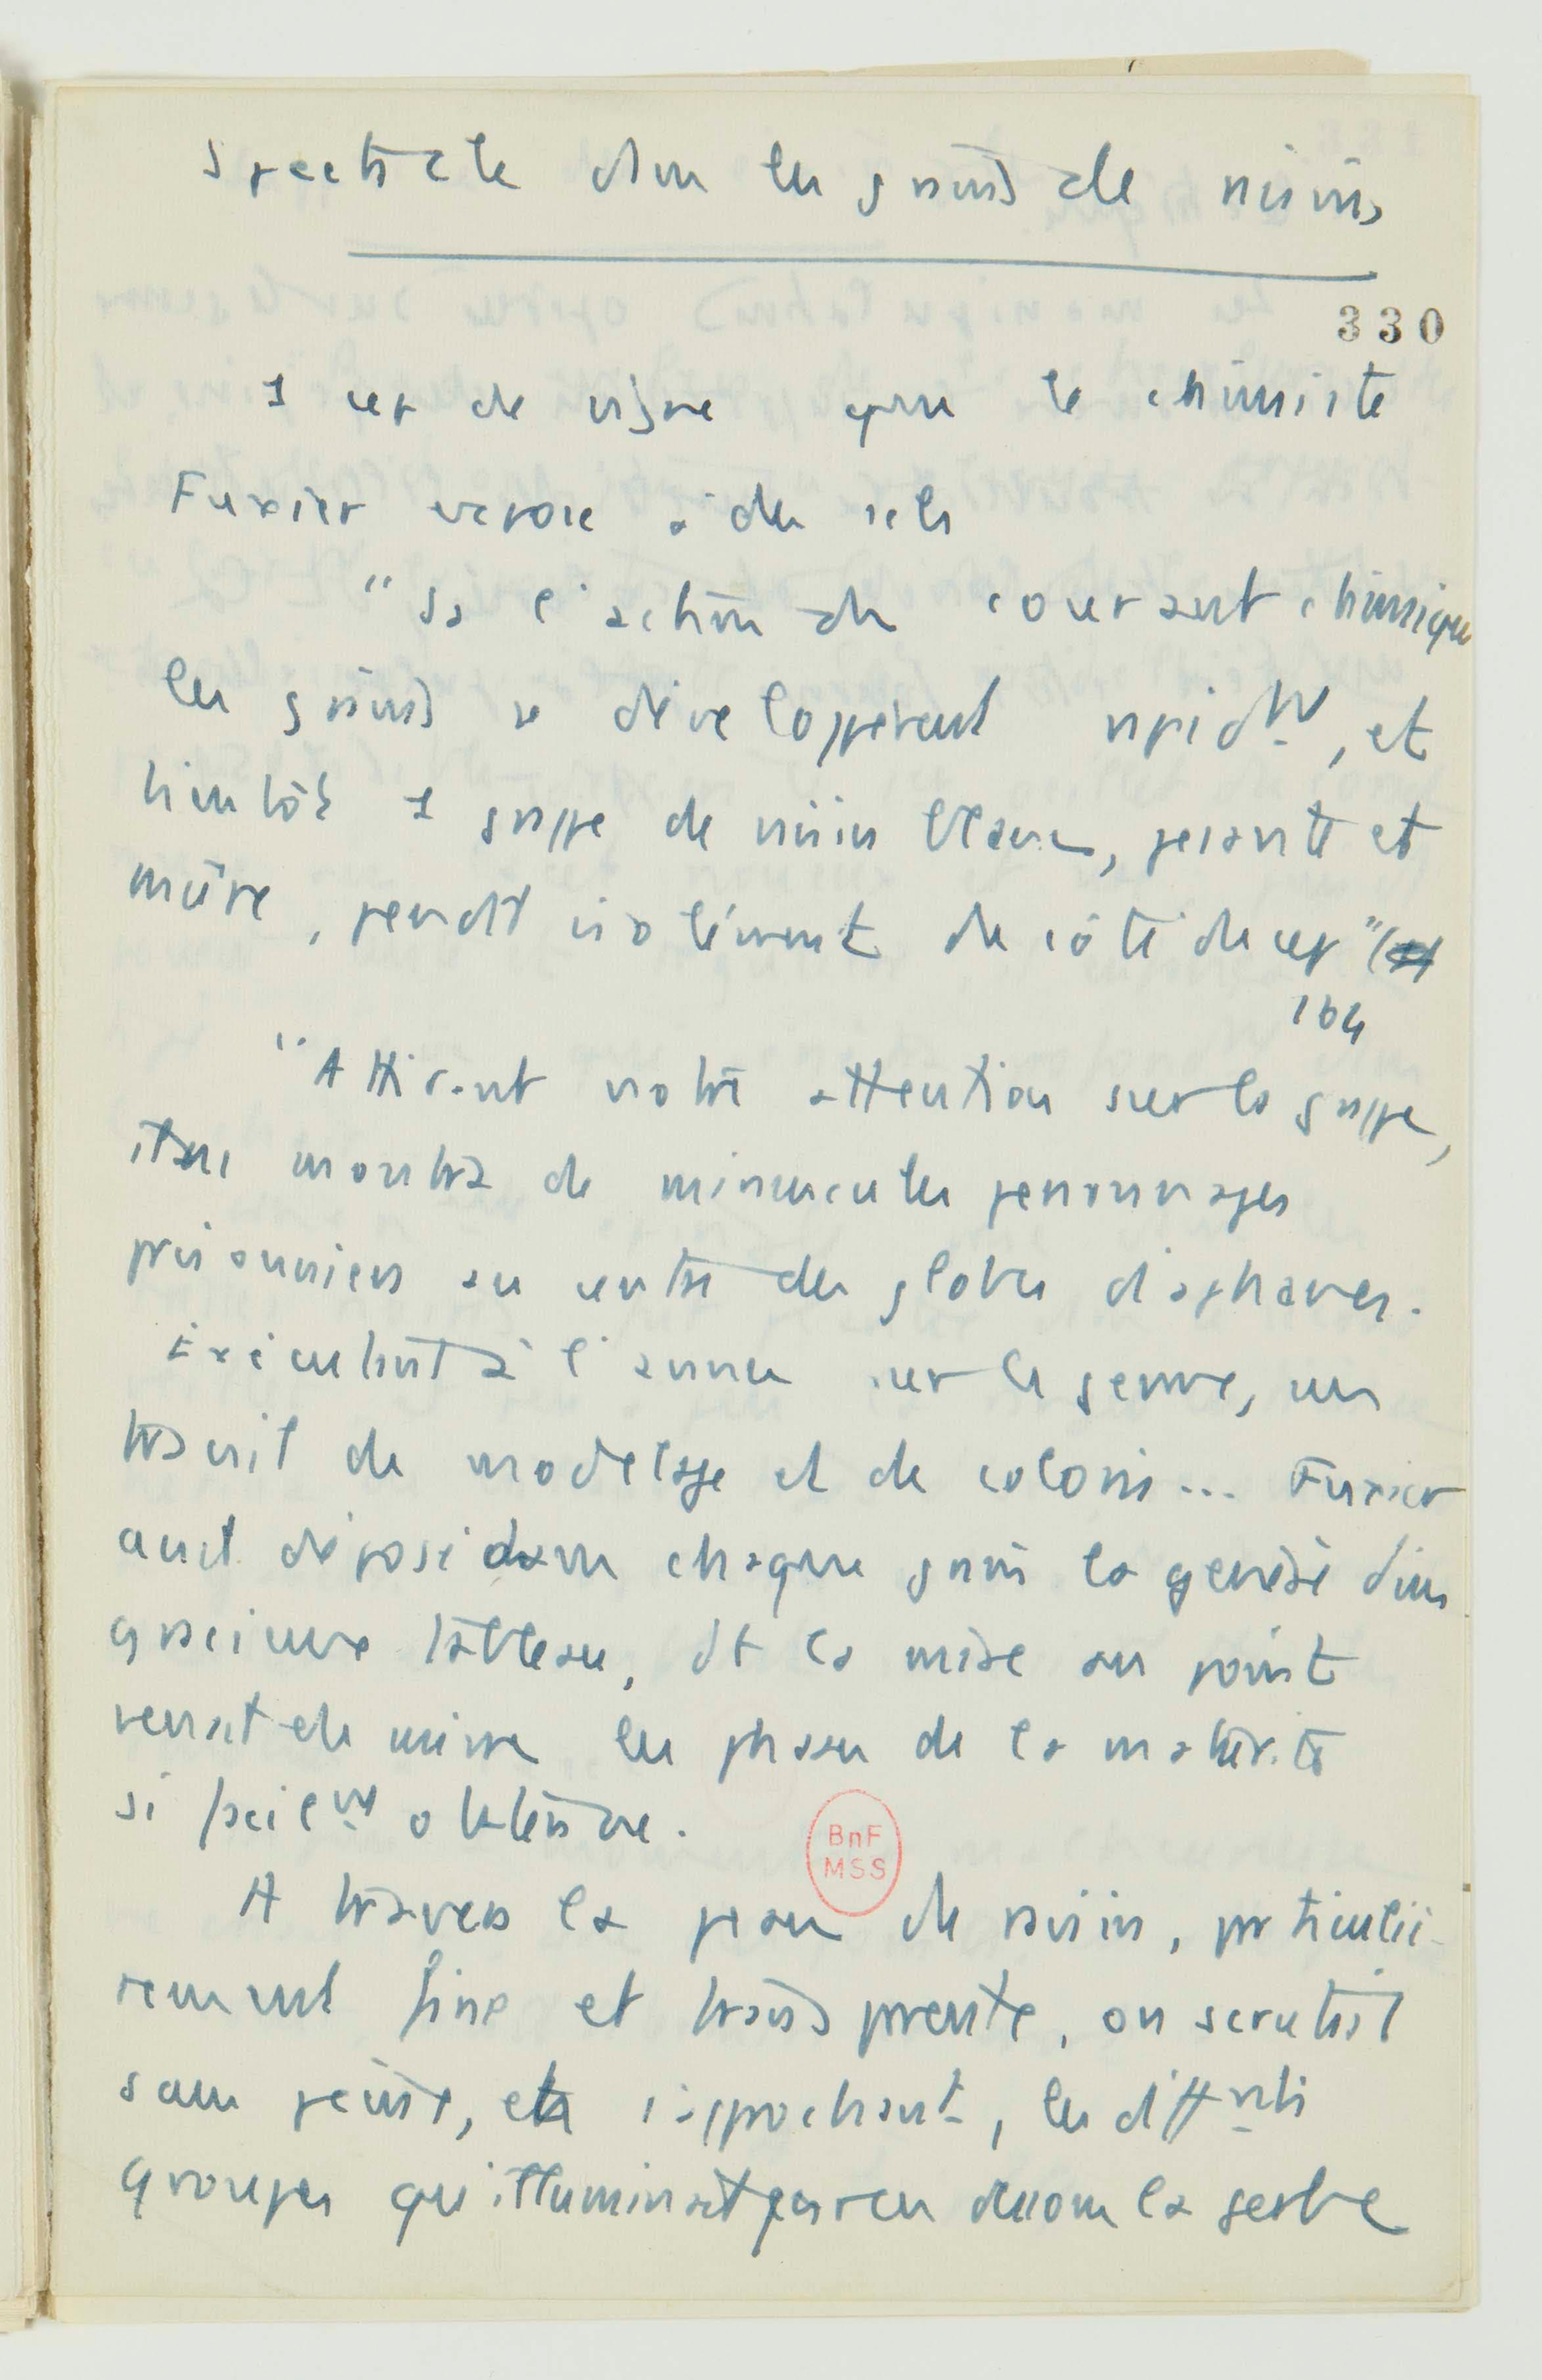 Spectacle dans les grains de raisins
330
1 cep de vigne que le chimiste
Fuxier expose à des sels
"Ss l'action du courant chimique
les grains se développèrent rapidmt, et
bientôt 1 grappe de raisin blanc, pesante et
mûre, pendit isolément du côté du cep" (
164
"Attirant notre attention sur la grappe,
montra de minuscules personnages
prisonniers au centre des globes diaphanes.
Exécutant à l'avance sur le germe, un
travail de modelage et de coloris... Fuxier
avait déposé dans chaque grain la genèse d'un
gracieux tableau, dt la mise au point
venait de suivre les phases de la maturité
si facilmt obtenue.
A travers la peau du raisin, particuliè-
rement fine et transparente, on scrutait
sans peine, en s'approchant, les différents
groupes qu'illuminait par en dessous la gerbe
BnF
MSS